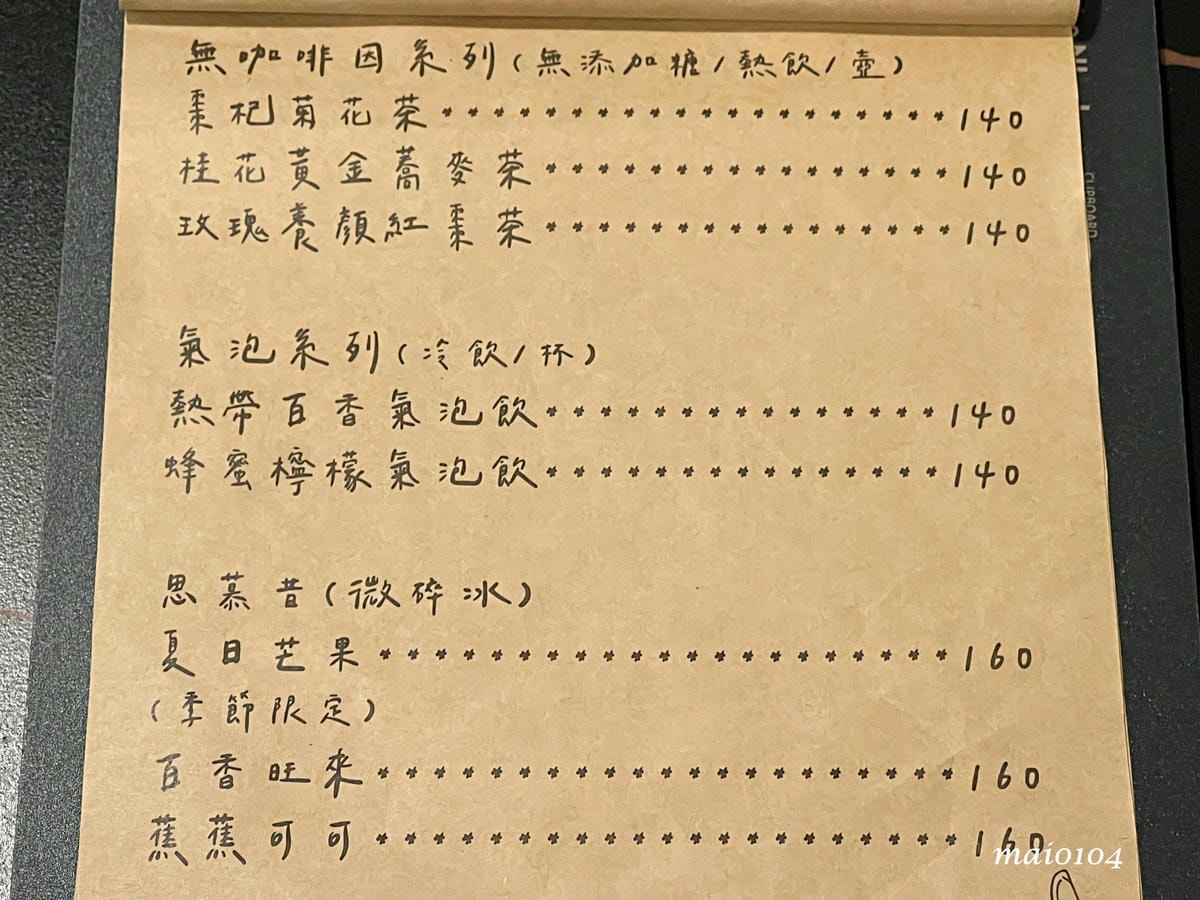 無咖啡因系列(無添加糖/熱飲/壺)
棗杞菊花茶******************140
桂花黃金蕎麥茶****************140
玫瑰養顏紅棗茶****************140
氣泡系列(冷飲/杯)
熱帶百香氣泡飲***************140
蜂蜜檸檬氣泡飲***************140
思慕昔(微碎冰)
夏日芒果*********************160
(季節限定)
百香旺來*********************160
蕉蕉可可*********************160
maio104
CLIPBOARD